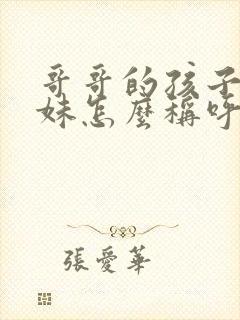 哥哥的孩子
妹怎麼稱呼
張愛華